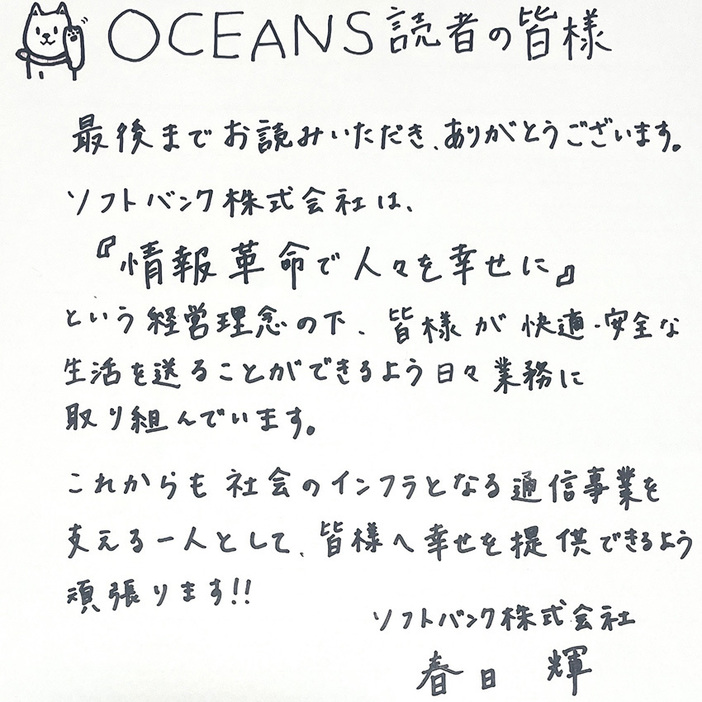 OCEANS読者の皆様
最後までお読みいただき、ありがとうございます。
ソフトバンク株式会社は、
『情報革命で人々を幸せに』
という経営理念の下、皆様が快適・安全な
生活を送ることができるよう日々業務に
取り組んでいます。
これからも社会のインフラとなる通信事業を
支える一人として、皆様へ幸せを提供できるよう
頑張ります!!
ソフトバンク株式会社
春日 輝